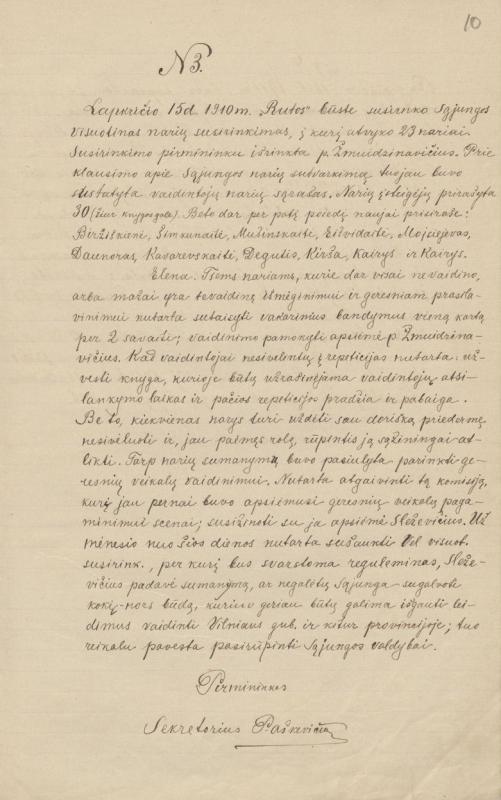 10
N 3.
Lapkričio 15 d. 1910 m. „Rutos" būste susirinko Sąjungos
visuotinas narių susirinkimas, į kurį atvyko 23 nariai.
Susirinkimo pirmininku išrinkta p. Žmuidzinavičius. Prie
klausimo apie Sąjungos narių sutvarkimą tuojau buvo
sustatyta vaidintojų narių sąrašas. Narių įsteigėjų prirašyta
30 (žiur. knygos gale). Beto dar per patį posėdį naujai prisirašė:
Biržiškienė, Šimkunaitė, Mušinskaitė, Eišvidaitė, Mojsiejevas,
Daunoras, Kavarevskaitė, Degutis, Kirša, Kairys ir Kairys.
Elena. Tiems nariams, kurie dar visai nevaidino,
arba mažai yra tevaidinę išmėginimui ir geresniam prasila-
vinimui nutarta sutaisyti vakarinius bandymus vieną kartą
per 2 savaiti; vaidinimo pamokyti apsiėmė p. Žmuidzina-
vičius. Kad vaidintojai nesivėlintų į repeticijas nutarta: už-
vesti knyga, kurioje būtų užrašinėjama vaidintojų atsi-
lankymo laikas ir pačios repeticijos pradžia ir pabaiga.
Be to, kiekvienas narys turi uždėti sau dorišką priedermę
nesivėluoti ir, jau paėmęs rolę, rūpintis ją sąžiningai at-
likti. Tarp narių sumanymų buvo pasiulyta parinkti ge-
resnių veikalų vaidinimui. Nutarta atgaivinti tą komisiją,
kuri jau pernai buvo apsiėmusi geresnių veikalų paga-
minimui scenai; susižinoti su ja apsiėmė Sleževičius. Už
mėnesio nuo šios dienos nutarta sušaukti vėl visuot.
susirink., per kurį bus svarstoma reguleminas, Sleže-
vičius padavė sumanymą, ar negalėtų Sąjunga sugalvoti
kokį-nors būdą, kuriuo geriau būtų galima išgauti lei-
dimus vaidinti Vilniaus gub. ir kitur provincijoje; tuo
reikalu pavesta pasirūpinti Sąjungos valdybai.
Pirmininkas
Sekretorius P. Aškevičius